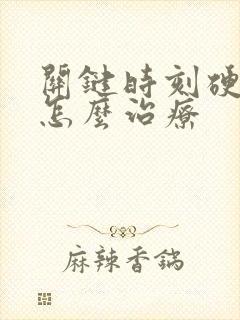 關鍵時刻硬
怎麼治療
麻辣香鍋